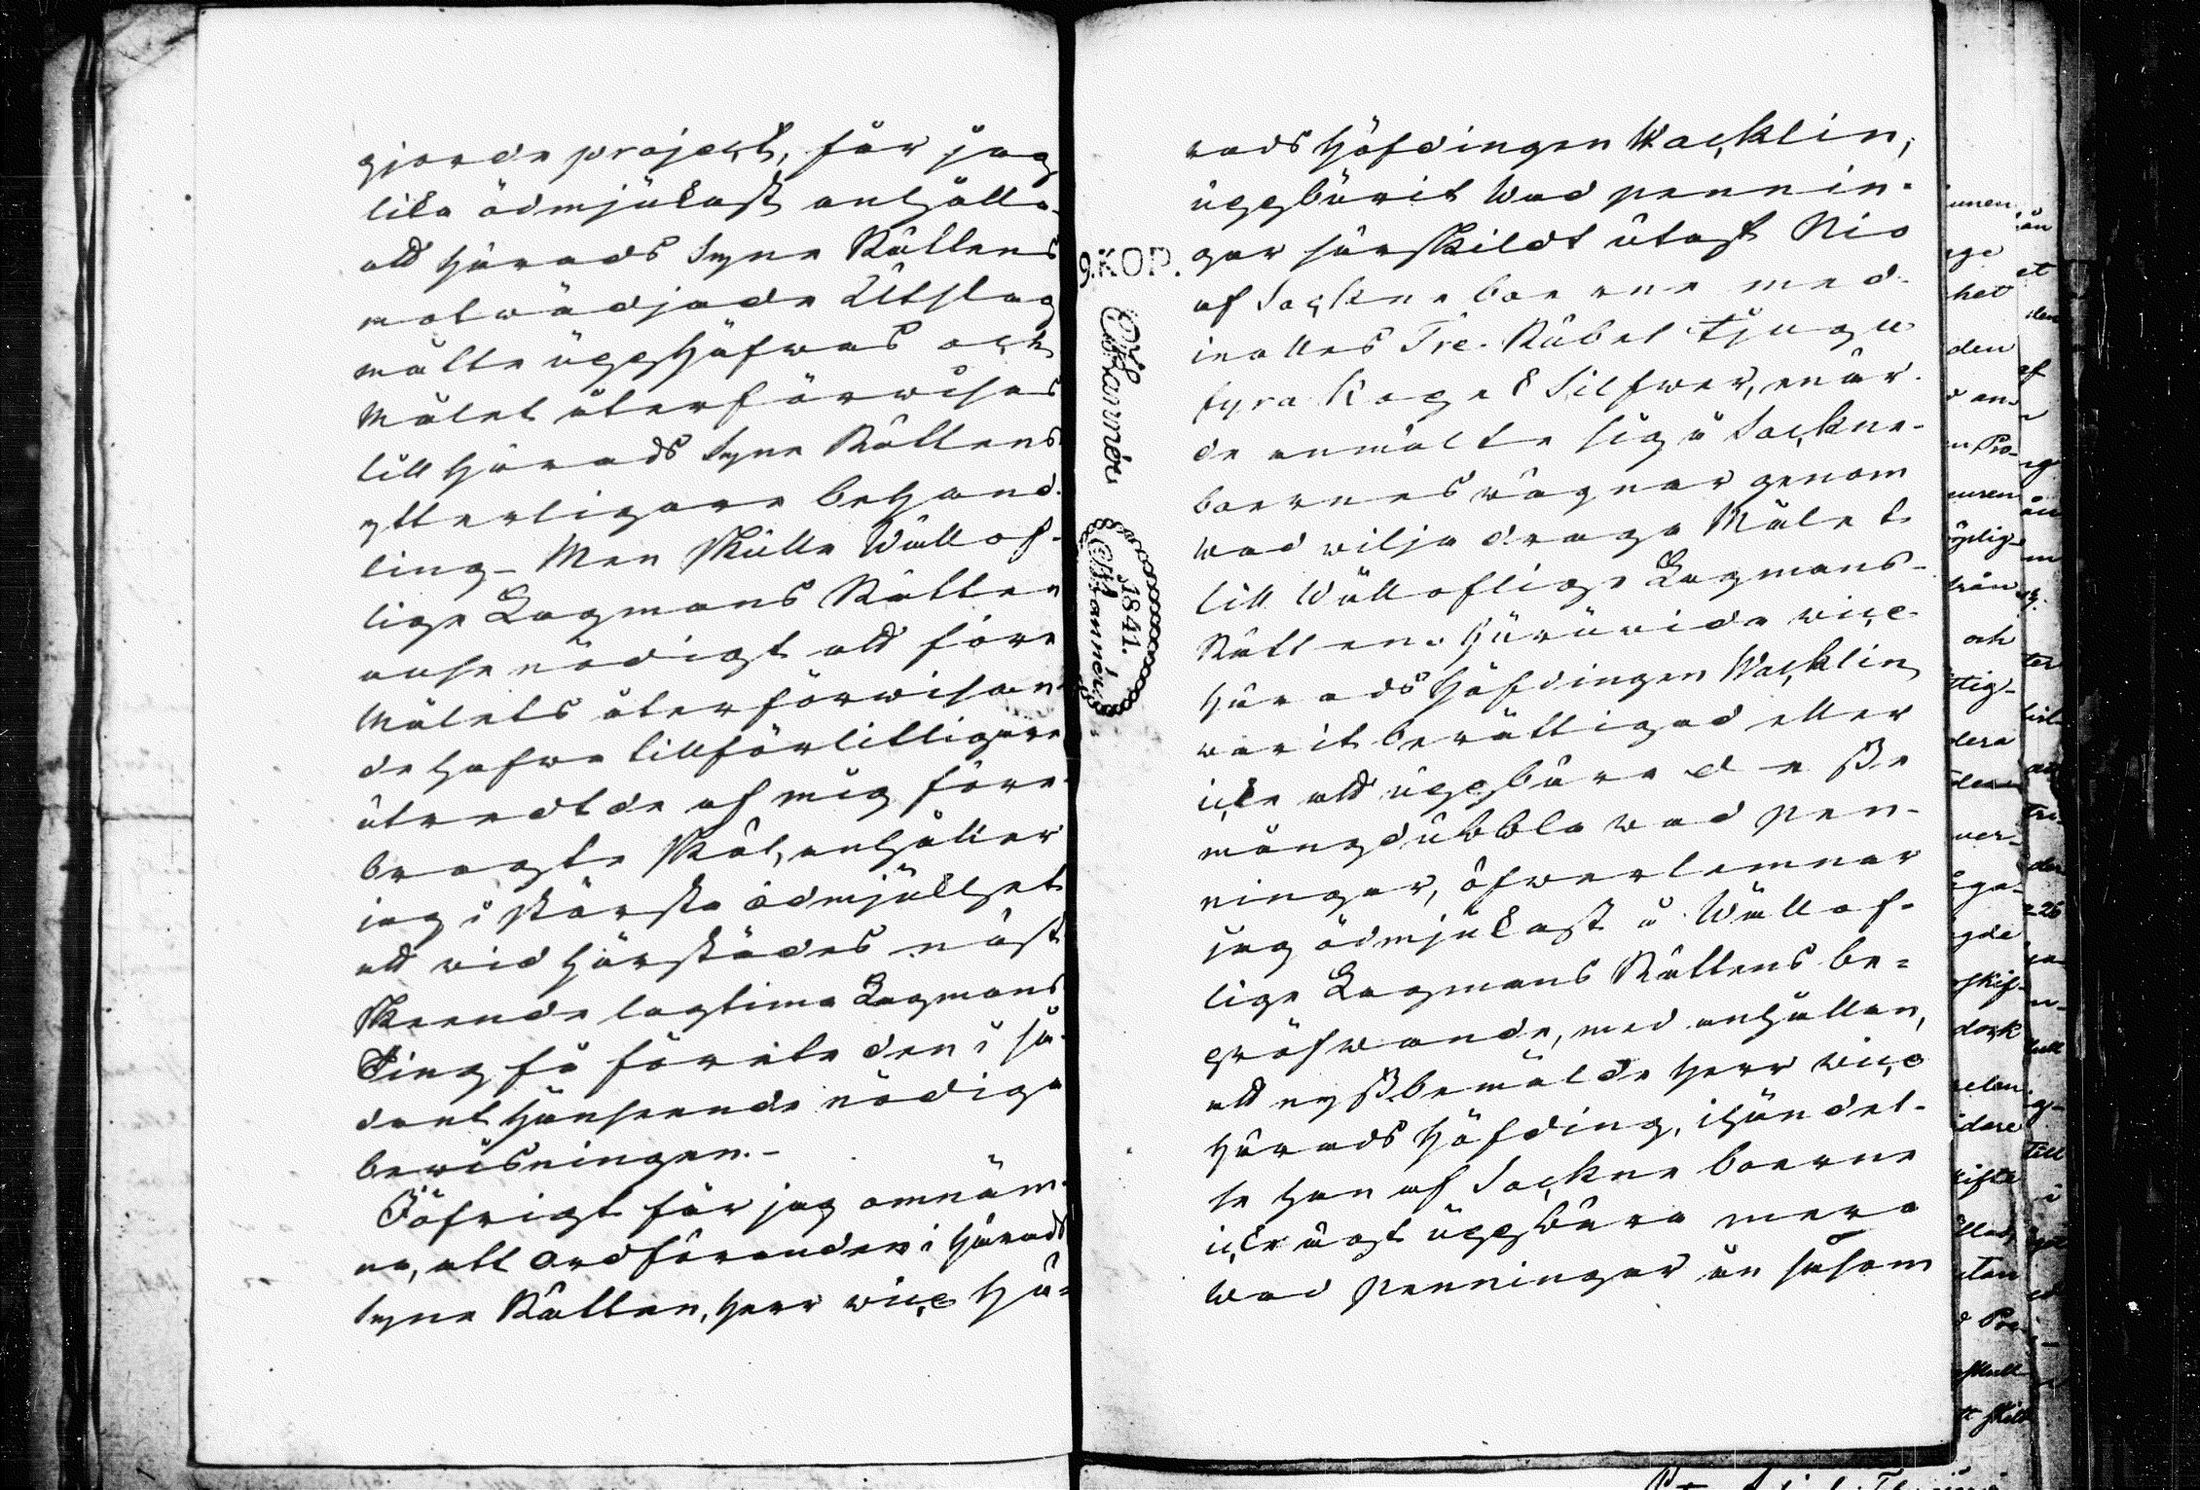 gjorde project, får jag
lika ödmjukast anhålla
att Härads Syne Rättens
motwädjade Utslag
måtte upphäfwas och
Målet återförwisas
till Härads Syne Rättens
ytterligare behand-
ling – Men skulle Wällof-
lige Lagmans Rätten
anse nödigt att före
Målets återförwisan-
de hafwa tillförlitligare
utredt de af mig före-
bragte skäl, anhåller
jag i största ödmjukhet
att wid härstädes näst
skeende lagtima Lagmans
Ting få förete den i så-
dant hänseende nödiga
bewisningen. –
Öfrigt får jag omnäm-
na, att Ordföranden i Härads
Syne Rätten, Herr vice Hä-
rads Höfdingen Wacklin,
uppburit Wad pennin-
gar särskildt utaf Nio
af Sockneboerne med
inalles Tre Rubel tjugu
fyra Kopek Silfwer, enär
de anmälte sig å Sockne-
boernes wägnar genom
wad wilja draga Målet
till Wälloflige Lagmans-
Rätten. Huruvida vice
Härads Höfdingen Wacklin
warit berättigad eller
icke att uppbära desse
mångdubbla wad pen-
ningar, öfwerlemnar
jag ödmjukast å Wällof-
lige Lagmans Rättens be-
pröfwande, med anhållan,
att nyssbemälde Herr vice
Härads Höfding, ihändel-
se han af Sockne boerne
icke ägt uppbära mera
Wad penningar än såsom
9. KOP.
1841.